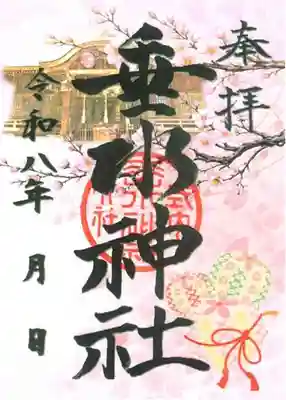 奉拝
垂水神社
令和八年 月 日